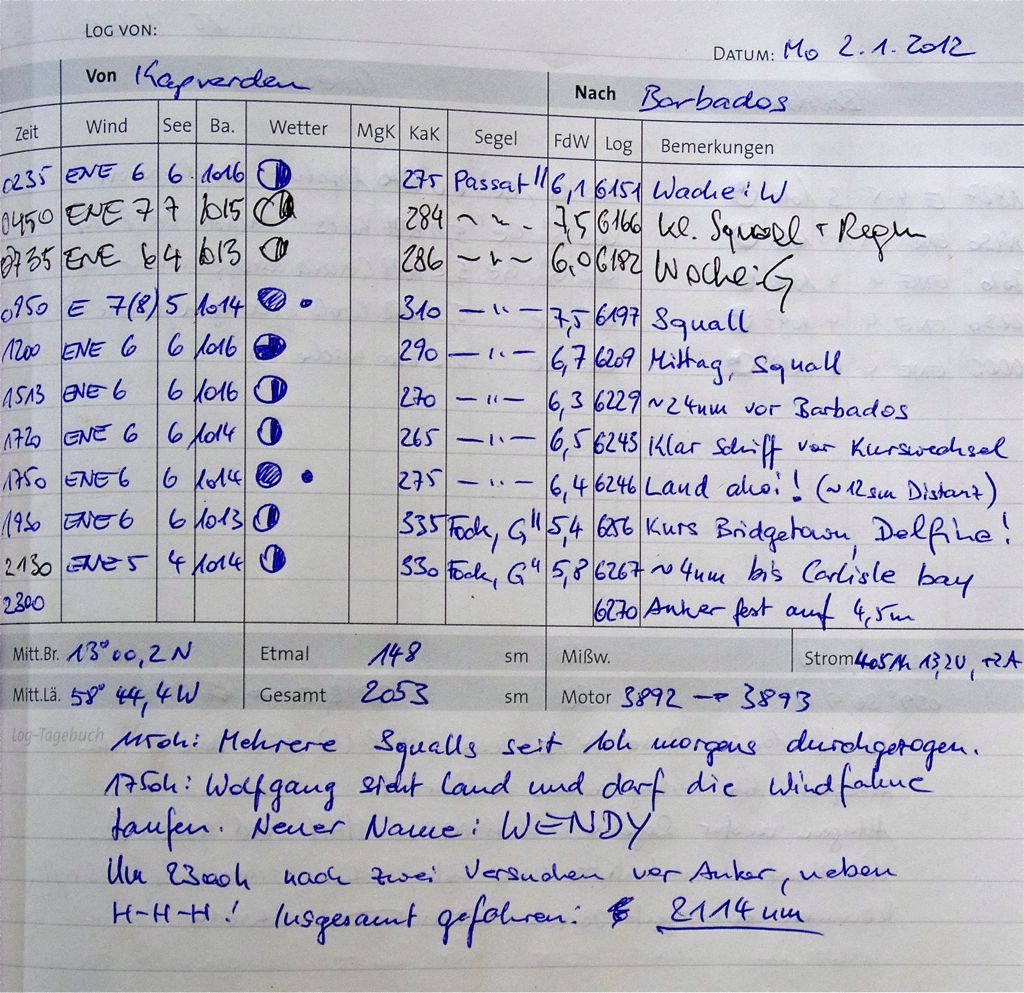 LOG VON:
DATUM: Mo 2.1.2012
Von Kapverden Nach Barbados
Zeit Wind See Ba. Wetter MgK KaK Segel FdW Log Bemerkungen
0235 ENE 6 6 1016 275 Passat II 6,1 6151 Wache: W
0450 ENE 7 7 1015 284 ~ " ~ 7,5 6166 kl. Squall + Regen
0735 ENE 6 4 1013 286 ~ " ~ 6,0 6182 Wache: G
0950 E 7(8) 5 1014 310 — " — 7,5 6197 Squall
1200 ENE 6 6 1016 290 — " — 6,7 6209 Mittag, Squall
1513 ENE 6 6 1016 270 — " — 6,3 6229 ~24nm vor Barbados
1720 ENE 6 6 1014 265 — " — 6,5 6243 Klar Schiff vor Kurswechsel
1750 ENE 6 6 1014 275 — " — 6,4 6246 Land ahoi! (~12sm Distanz)
1930 ENE 6 6 1013 335 Fock, G II 5,4 6256 Kurs Bridgetown, Delfine!
2130 ENE 5 4 1014 330 Fock, G II 5,8 6267 ~4nm bis Carlisle bay
2300 6270 Anker fest auf 4,5m
Mitt.Br. 13°00,2 N Etmal 148 sm Mißw. Strom 405Ah 13,2V, +2A
Mitt.Lä. 58° 44,4 W Gesamt 2053 sm Motor 3892 → 3893
Log-Tagebuch 1150h: Mehrere Squalls seit 10h morgens durchgezogen.
1750h: Wolfgang sieht Land und darf die Windfahne
taufen. Neuer Name: WENDY
Um 2300h nach zwei Versuchen vor Anker, neben
H-H-H! Insgesamt gefahren: 2114 nm